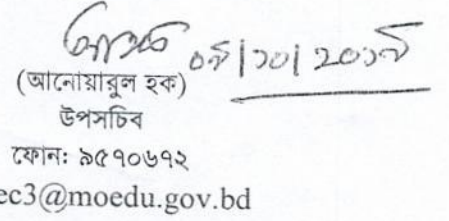 ০৯|১০|২০১৯
(আনোয়ারুল হক)
উপসচিব
ফোন: ৯৫৭০৬৭২
ec3@moedu.gov.bd